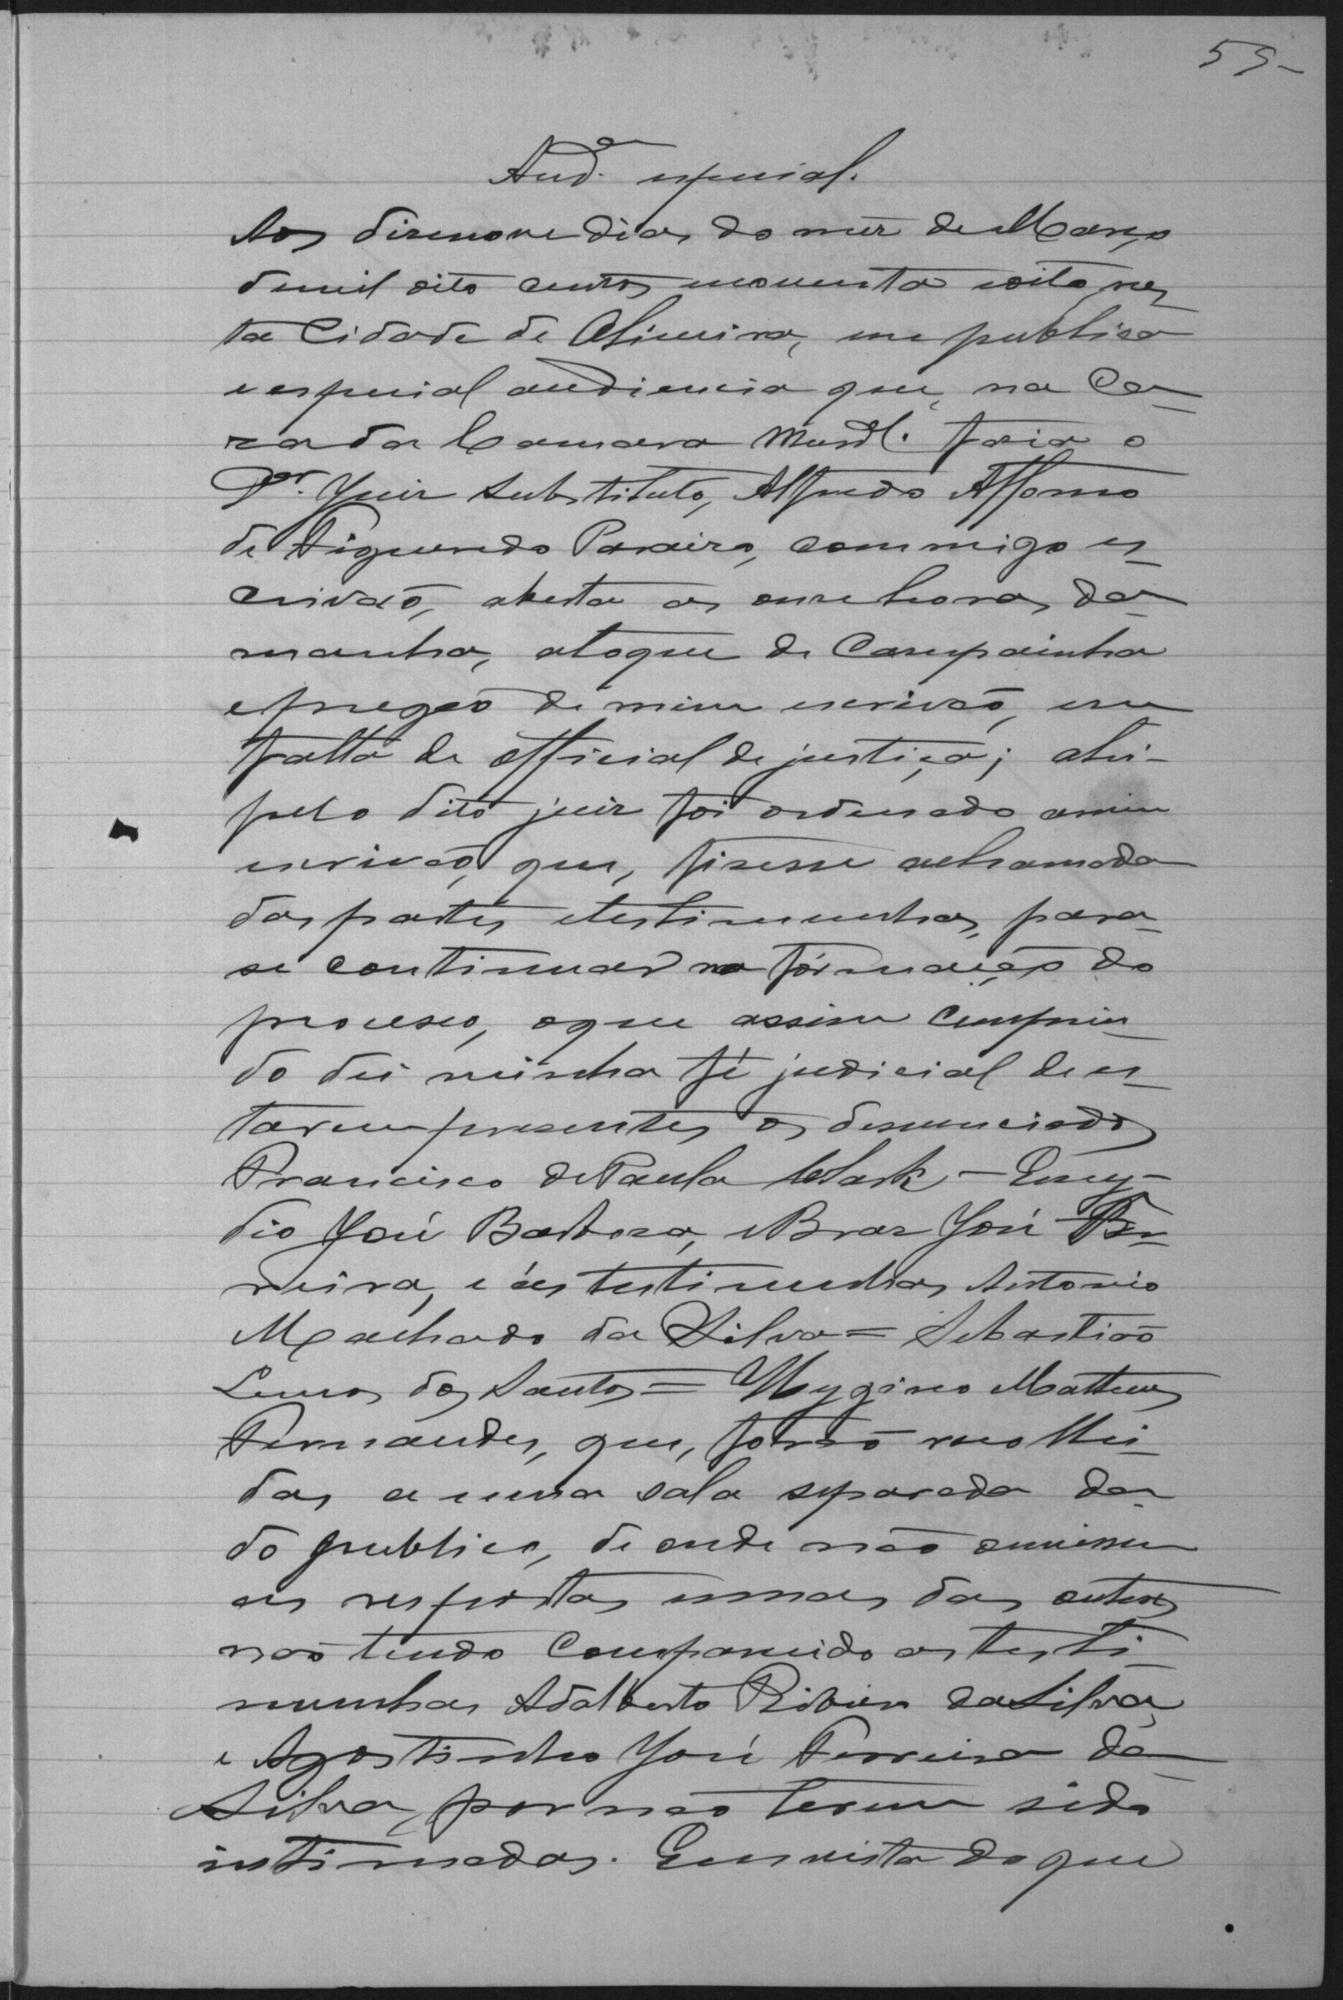 55-
Aud.ª especial.
Aos disenove dias do mez de Março
de mil oito centos noventa e oito nes
ta Cidade de Oliveira, em publica
e especial audiencia que, na Ca-
za da Camara Munal. fazia o
Dr. Juiz Substituto, Alfredo Affonso
de Figueredo Paraizo, commigo es
crivão, aberta as onze horas da
manha, a toque de Campainha
e pregão de mim escrivão, em
falta de official de justiça; ahi-
pelo dito juiz foi ordenado a mim
escrivão, que, fisesse a chamada
das partes e testimunhas, para
se continuar na formação do
processo, o que assim Cumprin
do dei minha fé judicial de es
tarem presentes os denunciados
Francisco de Paula Clark - Emy-
dio José Barboza, e Braz José Fer
reira, e as testimunhas Antonio
Machado da Silva = Sebastião
Lemos dos Santos = Hygino Matheus
Fernandes, que, forão recolhi
das a uma sala separada da
do publico, de onde não ouvissem
as respostas umas das outras
não tendo Comparecido as testi
munhas Adalberto Ribeiro da Silva
e Agostinho José Ferreira da
Silva, por não terem sido
intimadas. Em vista do que